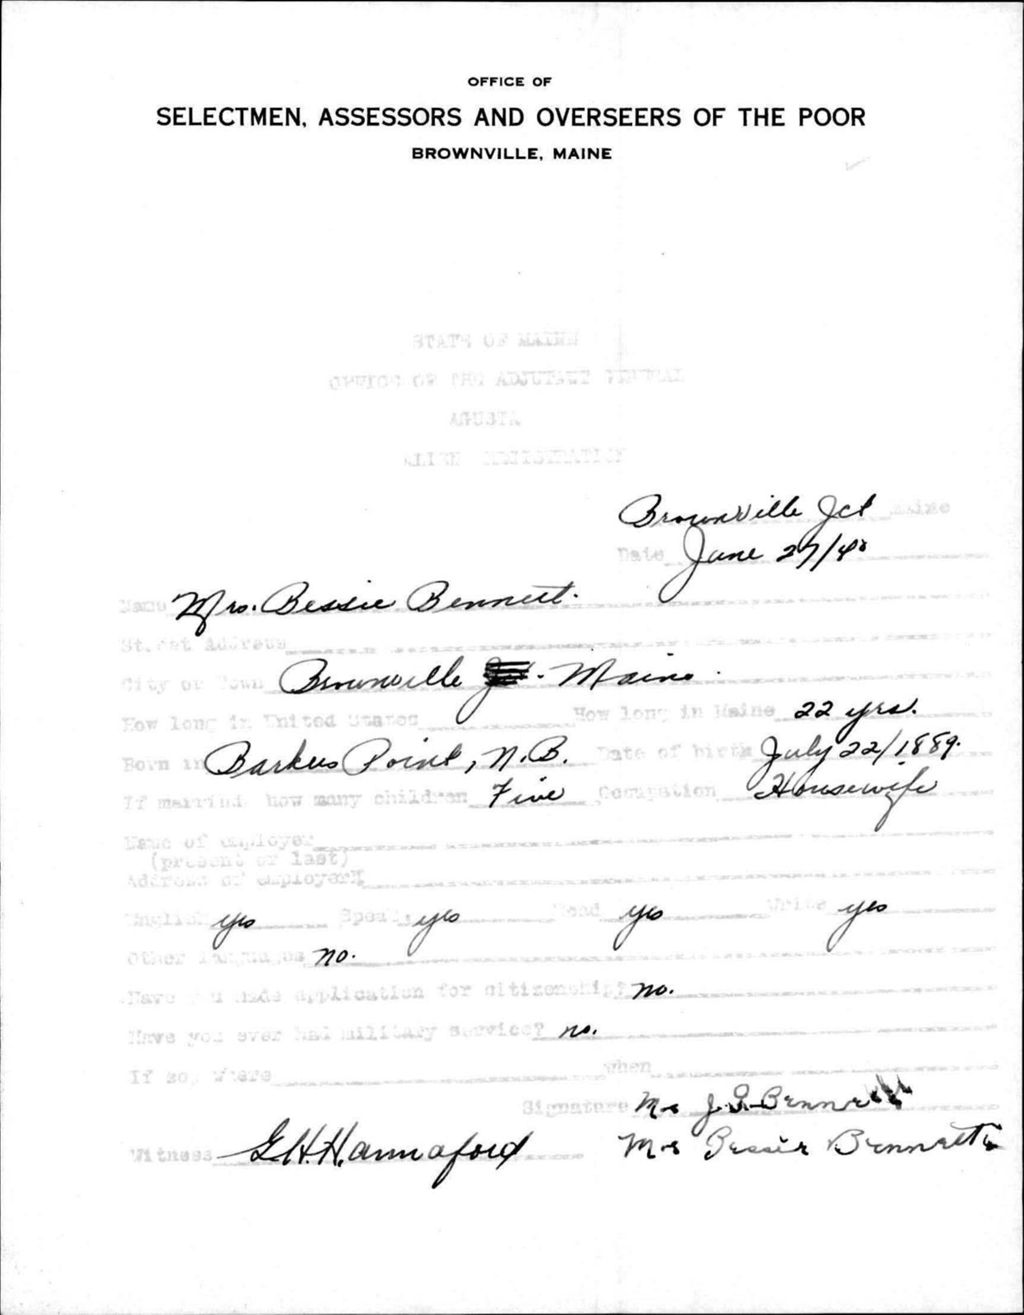 OFFICE OF
SELECTMEN, ASSESSORS AND OVERSEERS OF THE POOR
BROWNVILLE, MAINE
STATE OF MAINE
OFFICE OF THE ADJUTANT GENERAL
AGUSTA
ALIEN REGISTRATION
Brownville Jct Maine
Date June 27/40
Name Mrs. Bessie Bennett.
Street Address
City or Town Brownville . Maine.
How long in United States How long in Maine 22 yrs.
Born in Barkers Point, N.B. Date of birth July 22/1889.
If married, how many children Five Occupation Housewife
Name of employer
(present or last)
Address of employer
English yes Speak yes Read yes Write yes
Other languages no.
Have you made application for citizenship? no.
Have you ever had military service? no.
If so, where when
Signature Mrs J. S. Bennett
Witness G.H. Hannaford Mrs Bessie Bennett